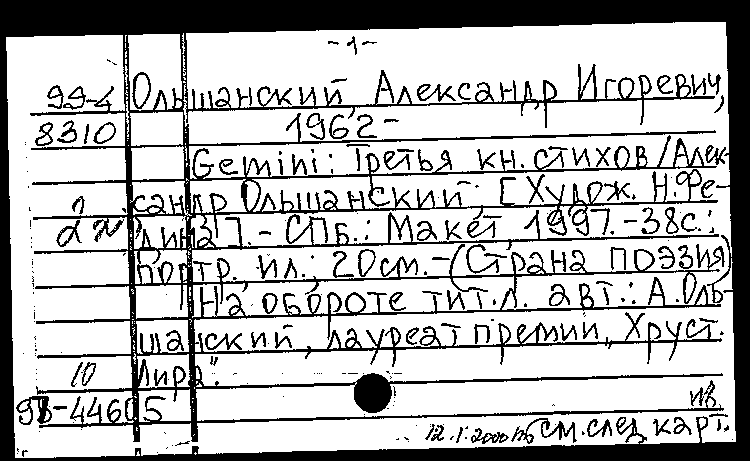 -1-
99-4 Ольшанский, Александр Игоревич,
8310 1962-
Gemini: Третья кн. стихов / Алек-
сандр Ольшанский; [Худож. Н. Ре-
2 дина]. - СПб.: Макет, 1997. - 38с.:
портр., ил.; 20см. - (Страна поэзия)
На обороте тит. л. авт.: А. Оль-
шанский, лауреат премии „Хруст.
10 Лира".
-44605
12.1.2000 см. след. карт.